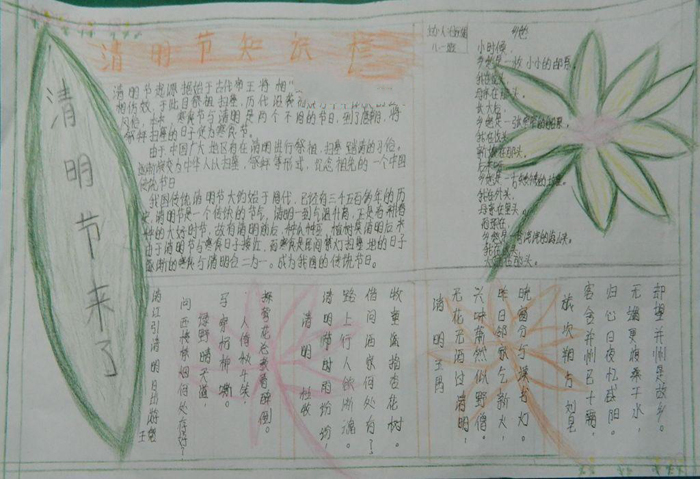 清明节知识栏
清明节来了
清明节起源据始于古代帝王将相"
相仿效,于此日祭祖扫墓,历代沿袭而成
风俗。本来,寒食节与清明是两个不同的节日,到了唐朝,将
祭拜扫墓的日子定为寒食节。
由于中国广大地区有在清明进行祭祖、扫墓、踏青的习俗。
逐渐演变为中华人以扫墓、祭拜等形式,纪念祖先的一个中国
传统节日
我国传统清明节大约始于周代,已经有二千五百多年的历
史。清明节是一个传统的节气,清明一到气温升高,正是春耕春
种的大好时节,故有清明前后,种瓜种豆。植树是清明后来
由于清明节与寒食日子接近,而寒食是民间禁火扫墓地的日子
逐渐的寒食与清明合二为一。成为我国的传统节日。
八一班
乡愁
小时候
乡愁是一枚小小的邮票。
我在这头
母亲在那头。
长大后,
乡愁是一张窄窄的船票。
我在这头
新娘在那头。
乡愁是一方矮矮的坟墓。
我在外头,
母亲在里头。
而现在
乡愁是一湾浅浅的海峡。
我在这头
大陆在那头。
清江引清明日出游 王
问西楼禁烟何处好?
绿野晴天道。
马穿杨柳嘶,
人倚秋千笑,
探莺花总教春醉倒。
清明 杜牧
清明时节雨纷纷
路上行人欲断魂。
借问酒家何处有
牧童遥指杏花村。
清明 王禹
无花无酒过清明,
兴味萧然似野僧。
昨日邻家乞新火,
晓窗分与读书灯。
旅次朔方 刘皂
客舍并州已十霜,
归心日夜忆咸阳。
无端更渡桑干水
却望并州是故乡。